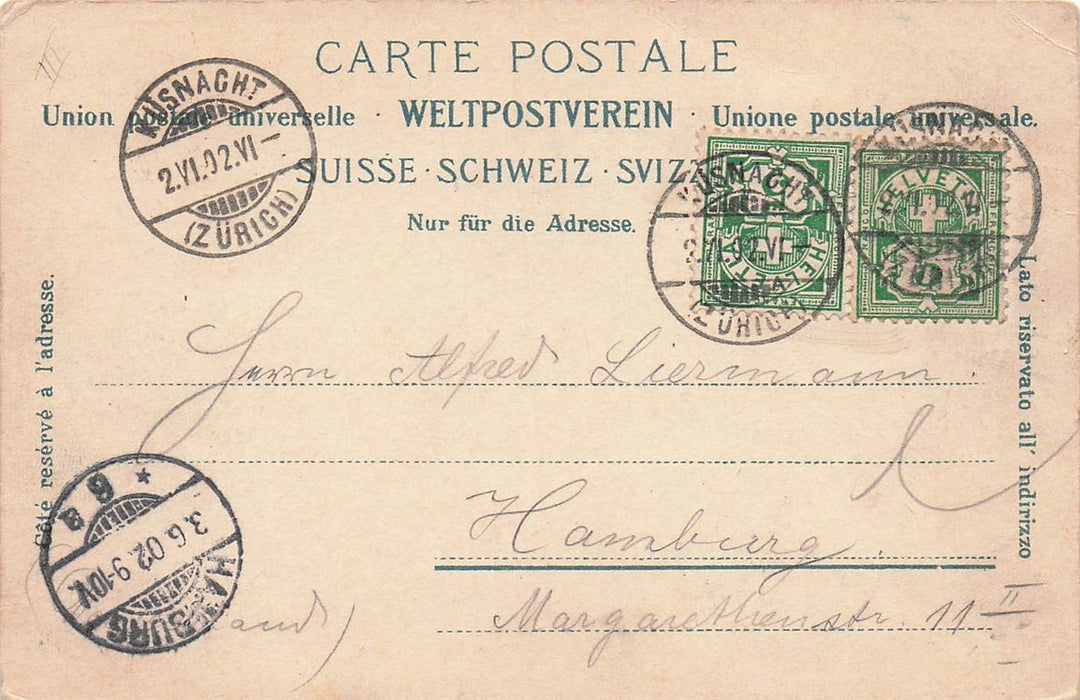 CARTE POSTALE
Union postale universelle · WELTPOSTVEREIN · Unione postale universale.
SUISSE · SCHWEIZ · SVIZZ
Nur für die Adresse.
KÜSNACHT
2.VI.02.VI–
(ZÜRICH)
KÜSNACHT
2.VI.02.VI–
(ZÜRICH)
HELVETIA
5
HELVETIA
5
KÜSNACHT
Côté resérvé à l'adresse.
Lato riservato all' indirizzo
Herrn Alfred Liermann.
Hamburg.
Margarethenstr. 11 II
HAMBURG
3.6.02.9-10V.
* 6 a